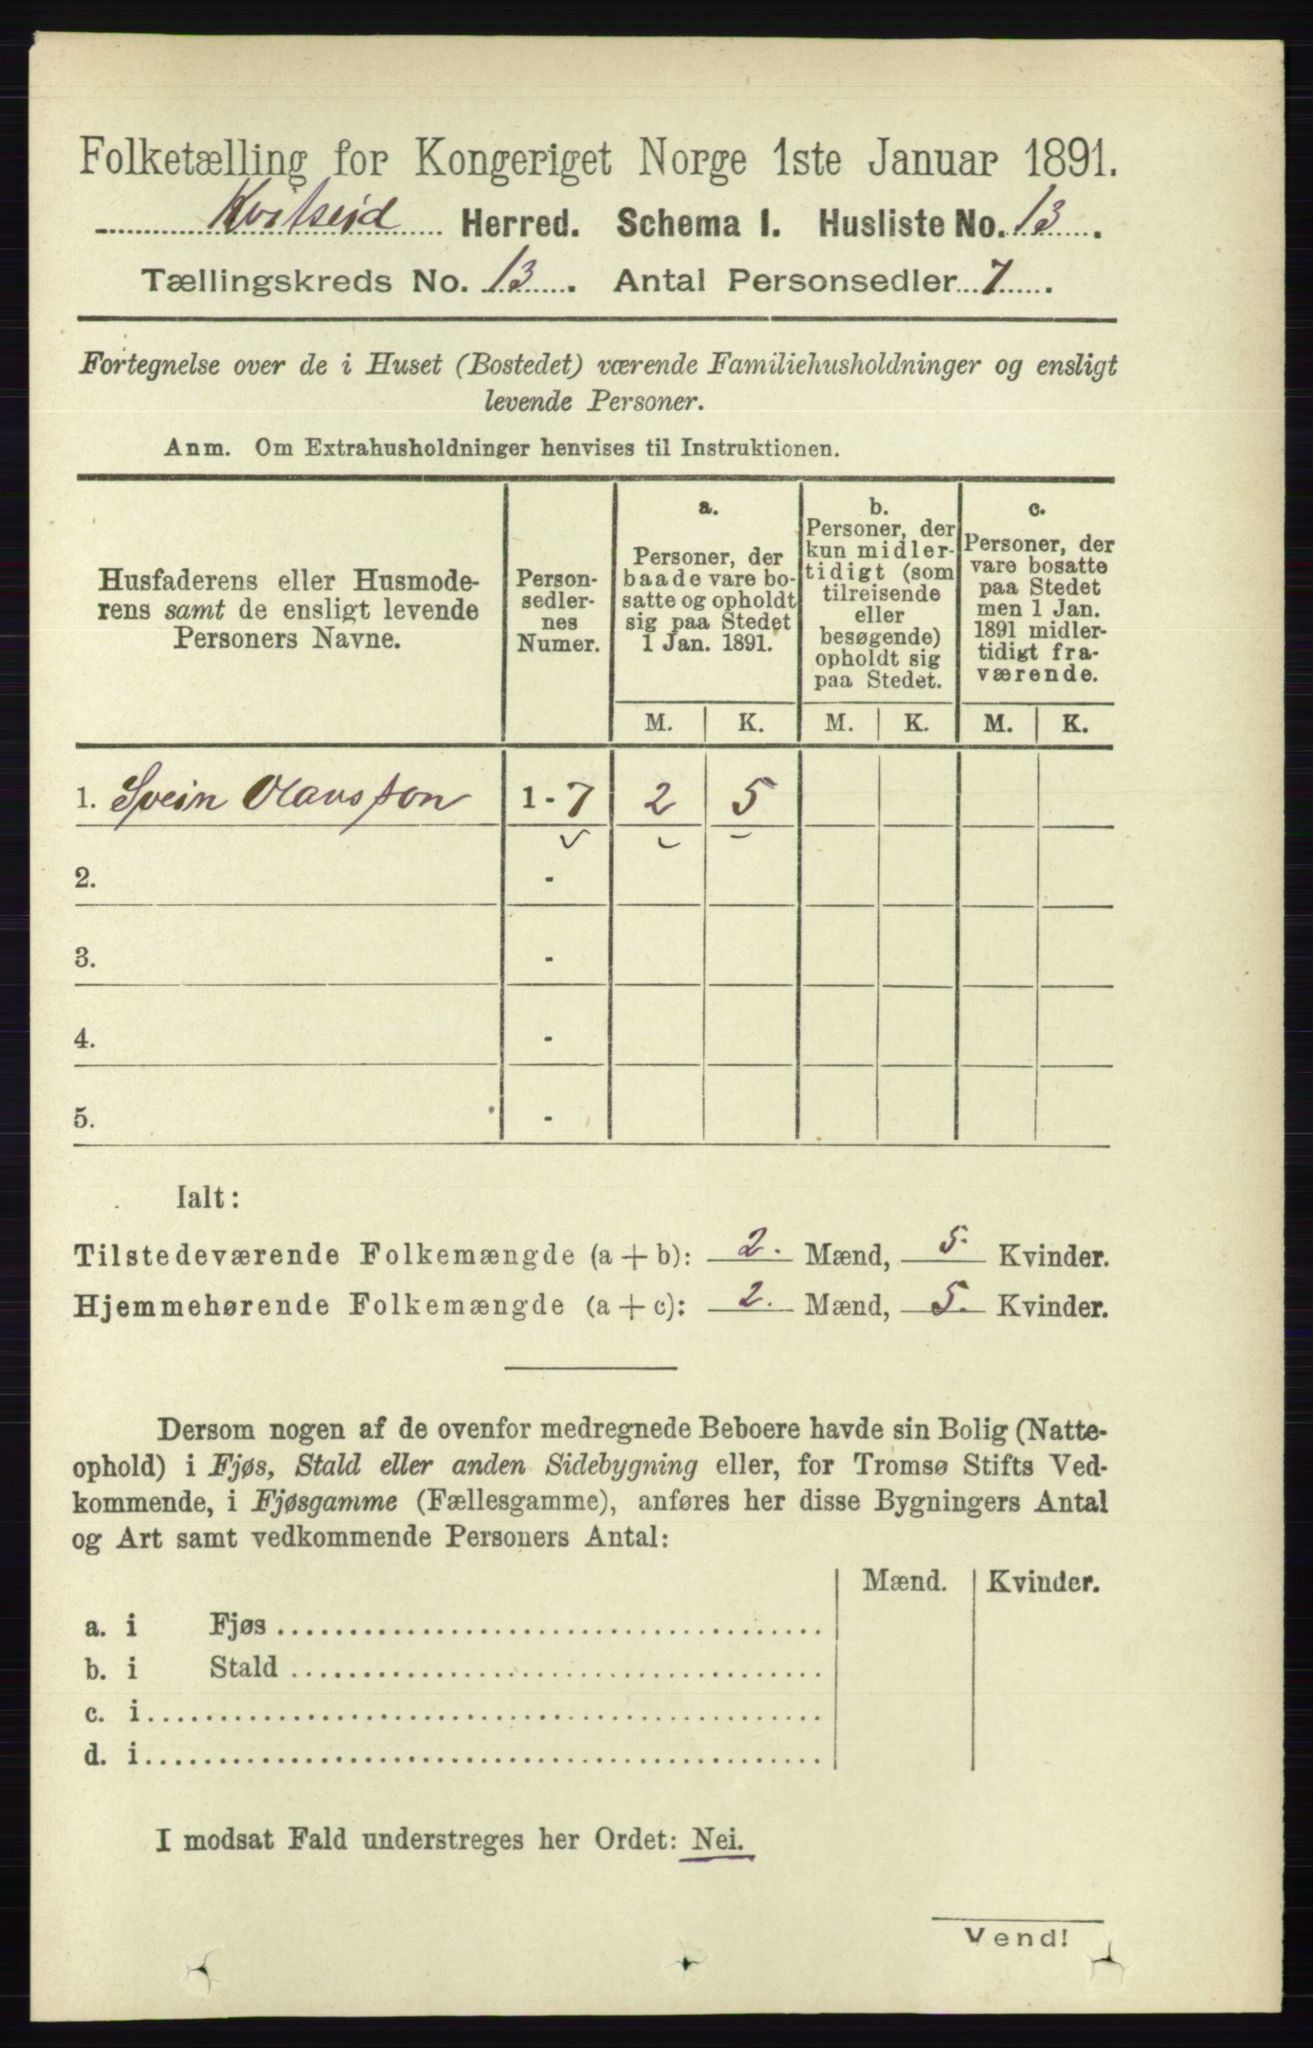 Folketælling for Kongeriget Norge 1ste Januar 1891.
Kvitseid Herred. Schema I. Husliste No. 13.
Tællingskreds No. 13. Antal Personsedler 7.
Fortegnelse over de i Huset (Bostedet) værende Familiehusholdninger og ensligt
levende Personer.
Anm. Om Extrahusholdninger henvises til Instruktionen.
Husfaderens eller Husmode-
rens samt de ensligt levende
Personers Navne.
Person-
sedler-
nes
Numer.
a.
Personer, der
baade vare bo-
satte og opholdt
sig paa Stedet
1 Jan. 1891.
b.
Personer, der
kun midler-
tidigt (som
tilreisende
eller
besøgende)
opholdt sig
paa Stedet.
c.
Personer, der
vare bosatte
paa Stedet
men 1 Jan.
1891 midler-
tidigt fra-
værende.
M. K. M. K. M. K.
1. Svein Olavsson 1 - 7 2 5
2. -
3. -
4. -
5. -
Ialt:
Tilstedeværende Folkemængde (a + b): 2. Mænd, 5. Kvinder.
Hjemmehørende Folkemængde (a + c): 2. Mænd, 5. Kvinder.
Dersom nogen af de ovenfor medregnede Beboere havde sin Bolig (Natte-
ophold) i Fjøs, Stald eller anden Sidebygning eller, for Tromsø Stifts Ved-
kommende, i Fjøsgamme (Fællesgamme), anføres her disse Bygningers Antal
og Art samt vedkommende Personers Antal:
Mænd. Kvinder.
a. i Fjøs
b. i Stald
c. i
d. i
I modsat Fald understreges her Ordet: Nei.
Vend!